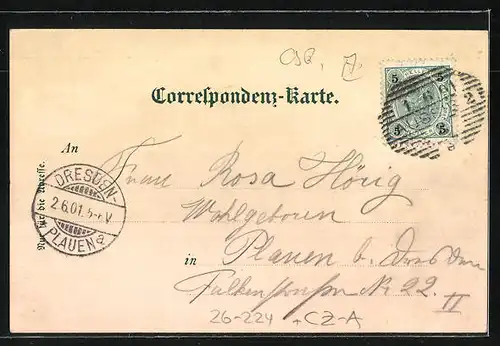 CSQ. 7.
Correspondenz-Karte.
5 5
5 5
An
Nur für die Adresse.
DRESDEN-
2.6.01.5-6V
PLAUEN a
Frau Rosa Hörig
Wohlgeboren
in Plauen b. Dresden
Falkenstrasse Nr. 22.
II
26-224 + CZ-A